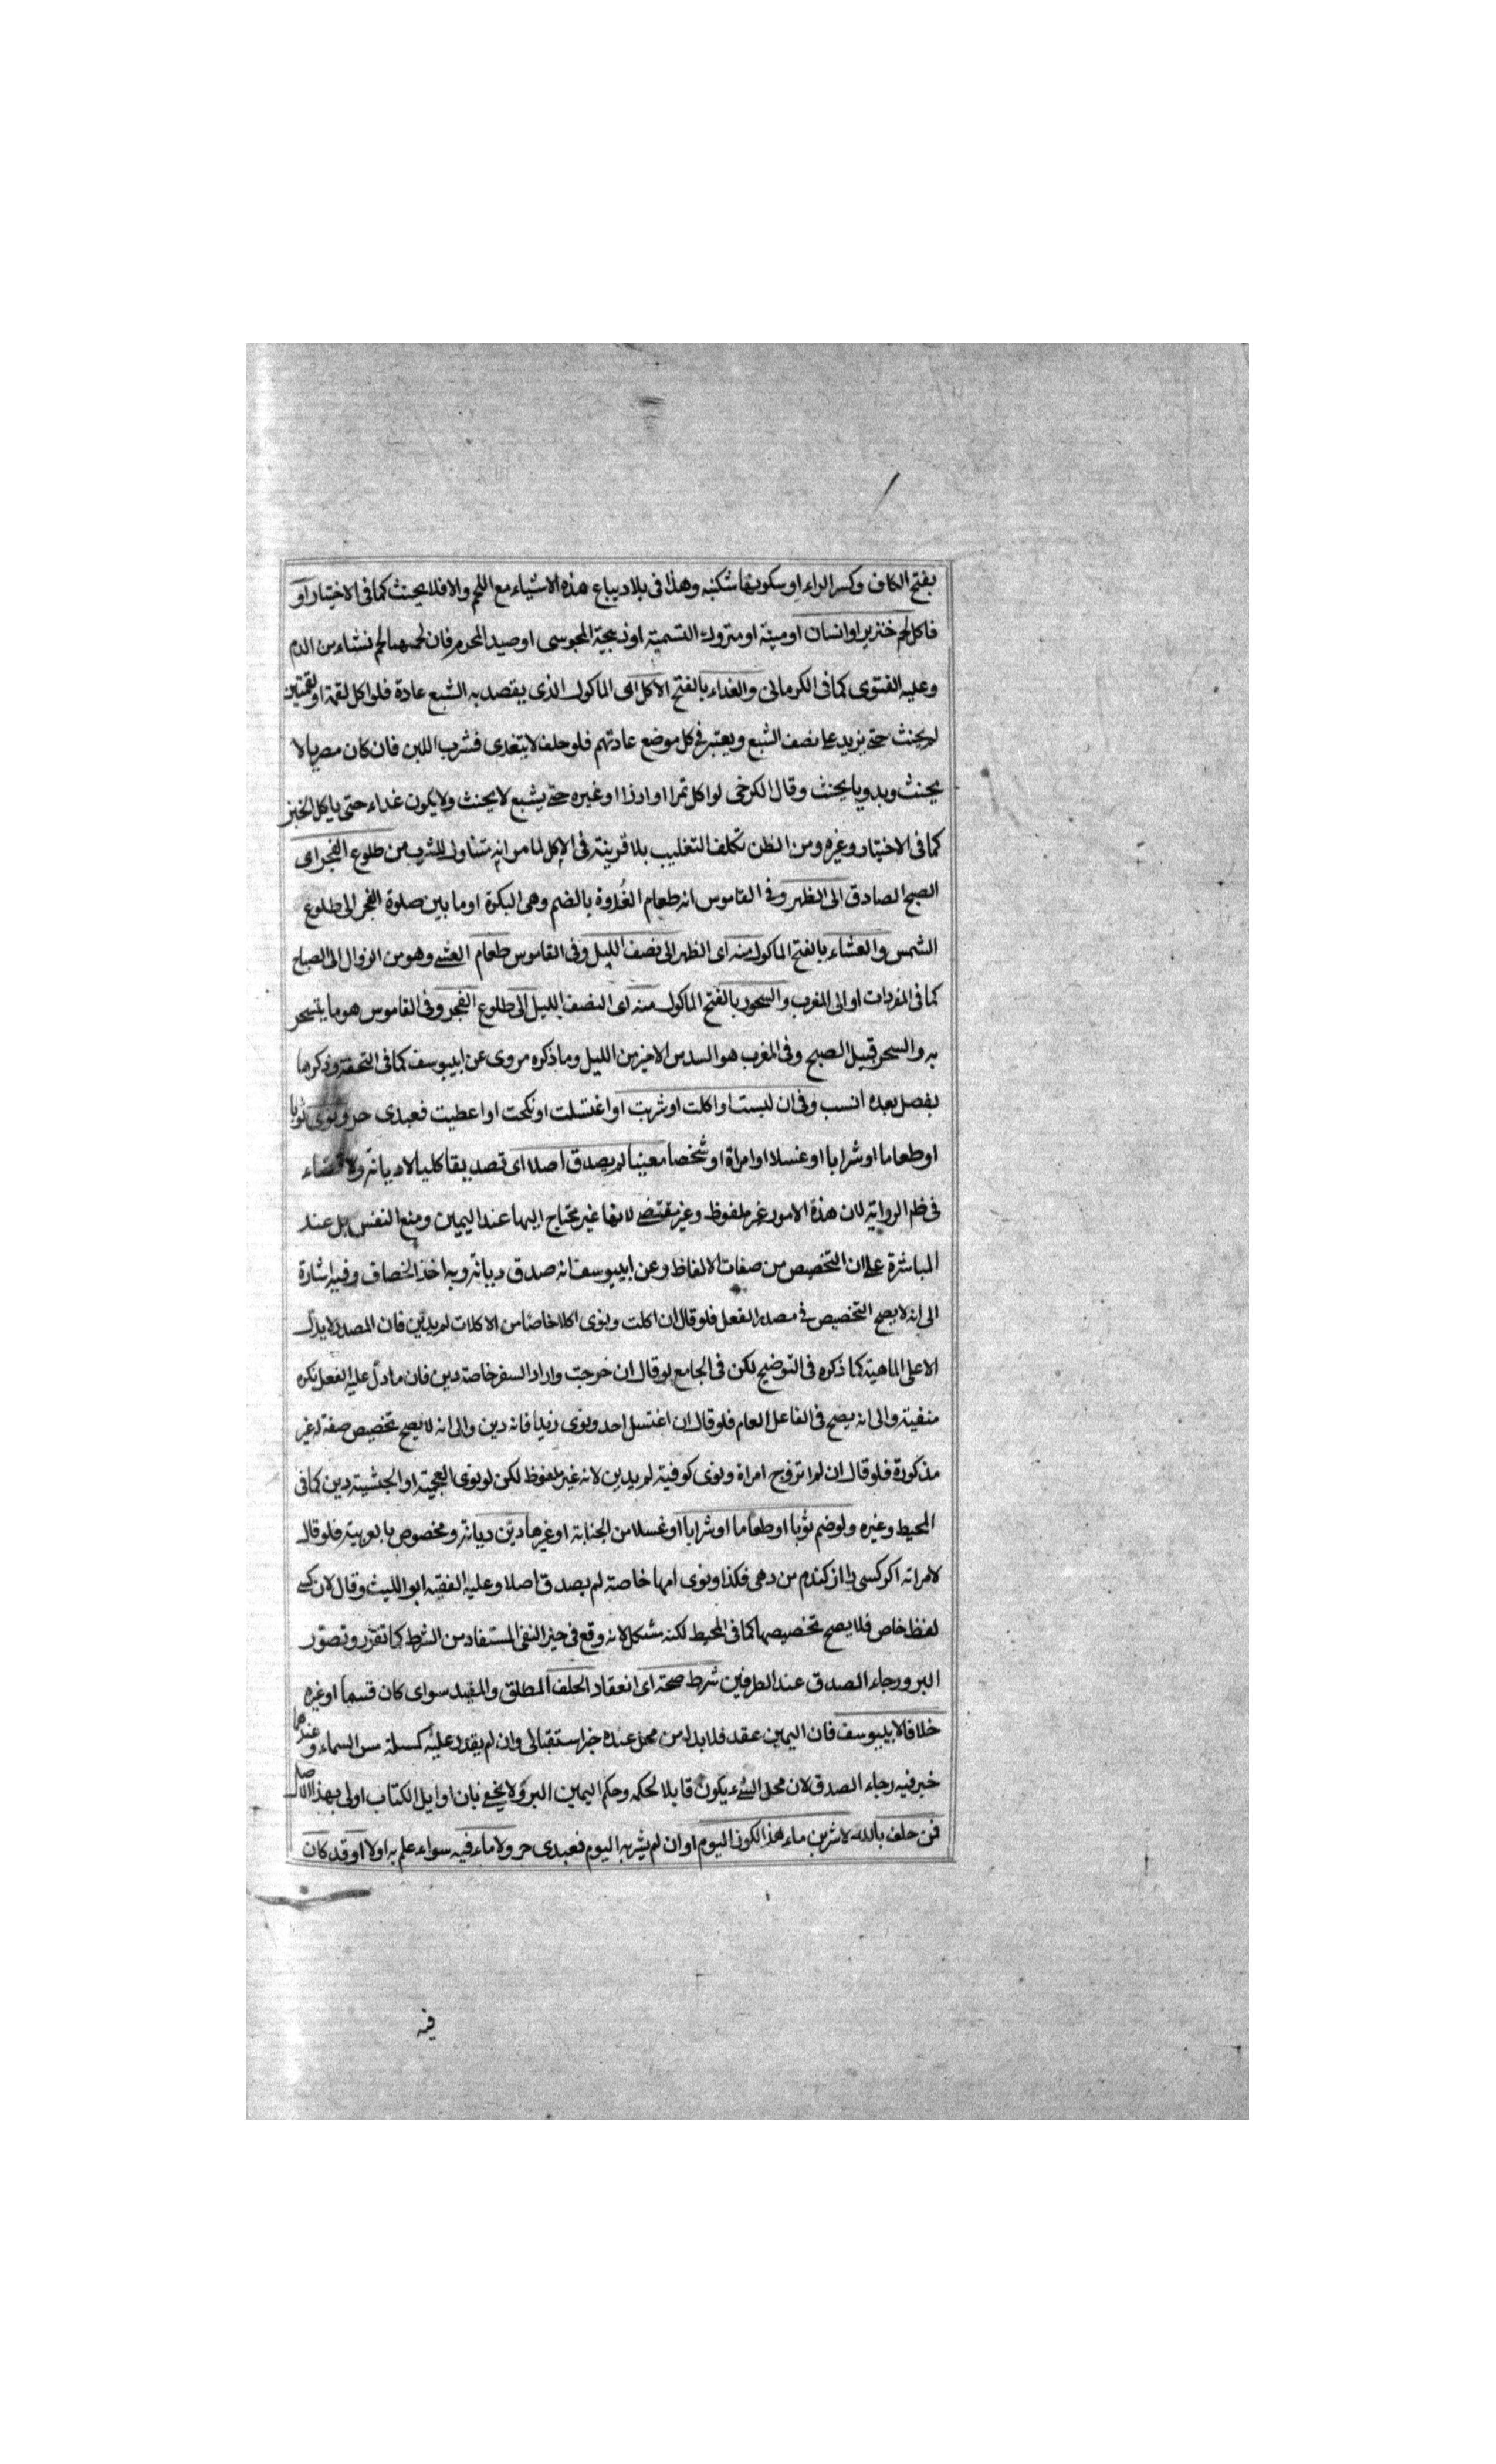 بفتح الكاف وكسر الراء او سكونها شكنبه وهذا فى بلاد يباع هذه الاشياء مع اللحم والا فلا يحنث كما فى الاختيار او
فاكل لحم خنزير او انسان او ميتة او متروك التسمية او ذبيحة المجوسى او صيد المحرم فان لحمهما لحم نشاء من الدم
وعليه الفتوى كما فى الكرمانى والغداء بالفتح الاكل اى الماكول الذى يقصد به الشبع عادة فلو اكل لقمة او لقمتين
لم يحنث حتى يزيد على نصف الشبع ويعتبر فى كل موضع عادتهم فلو حلف لا يتغدى فشرب اللبن فان كان مصريا لا
يحنث وبدويا يحنث وقال الكرخى لو اكل تمرا او ارزا او غيره حتى يشبع لا يحنث ولا يكون غداء حتى ياكل الخبز
كما فى الاختيار وغيره ومن الظن تكلف التغليب بلا قرينة فى الاكل لما مر انه متناول للشرب من طلوع الفجر اى
الصبح الصادق الى الظهر وفى القاموس انه طعام الغُدوة بالضم وهى البكرة او ما بين صلوة الفجر الى طلوع
الشمس والعشاء بالفتح الماكول منه اى الظهر الى نصف الليل وفى القاموس طعام العشى وهو من الزوال الى الصباح
كما فى المفردات او الى المغرب والسحور بالفتح الماكول منه اى النصف الليل الى طلوع الفجر وفى القاموس هو ما يتسحر
به والسحر قبيل الصبح وفى المغرب هو السدس الاخير من الليل وما ذكره مروى عن ابيوسف كما فى التحفة وذكرها
بفصل بعده انسب وفى ان لبست او اكلت او شربت او اغتسلت او نكحت او اعطيت فعبدى حر ونوى ثوبا
او طعاما او شرابا او غسلا او امراة او شخصا معينا لم يصدق اصلا اى تصديقا كليا لا ديانة ولا قضاء
فى ظم الرواية لان هذه الامور غير ملفوظ وغير مقتضى لانها غير محتاج اليها عند اليمين ومنع النفس بل عند
المباشرة على ان التخصيص من صفات الالفاظ وعن ابيوسف انه صدق ديانة وبه اخذ الخصاف وفيه اشارة
الى انه لا يصح التخصيص فى مصدر الفعل فلو قال ان اكلت ونوى اكلا خاصا من الاكلات لم يديّن فان المصدر لا يدل
الا على الماهية كما ذكره فى التوضيح لكن فى الجامع لو قال ان خرجت واراد السفر خاصة دين فان ما دل عليه الفعل نكره
منفية والى انه يصح فى الفاعل العام فلو قال ان اغتسل احد ونوى زيدا فانه دين والى انه لا يصح تخصيص صفة له غير
مذكورة فلو قال ان لم اتزوج امراة ونوى كوفية لم يدين لانه غير ملفوظ لكن لو نوى العجمية او الحبشية دين كما فى
المحيط وغيره ولو ضم ثوبا او طعاما او شرابا او غسلا من الجنابة او غيرها ديّن ديانة ومخصوص بالعربية فلو قال
لامراته اكر كسى را از كندم من دهى فكذا ونوى امها خاصة لم يصدق اصلا وعليه الفقيه ابو الليث وقال لان كسى
لفظ خاص فلا يصح تخصيصها كما فى المحيط لكنه مشكل لانه وقع فى حيز النفى المستفاد من الشرط كما تقرّر وتصوّر
البر ورجاء الصدق عند الطرفين شرط صحة اى انعقاد الحلف المطلق والمقيد سواى كان قسما او غيره
خلافا لابيوسف فان اليمين عقد فلا بد له من محل عنده خبر استقبالى وان لم يقدر عليه كمسئلة مس السماء وعندهما
خبر فيه رجاء الصدق لان محل الشىء يكون قابلا لحكمه وحكم اليمين البر ولا يخفى بان اوايل الكتاب اولى بهذا الاصل
فمن حلف بالله لاشربن ماء هذا الكوز اليوم او ان لم يشربه اليوم فعبدى حر ولا ماء فيه سواء علم به اولا او قد كان
فيه